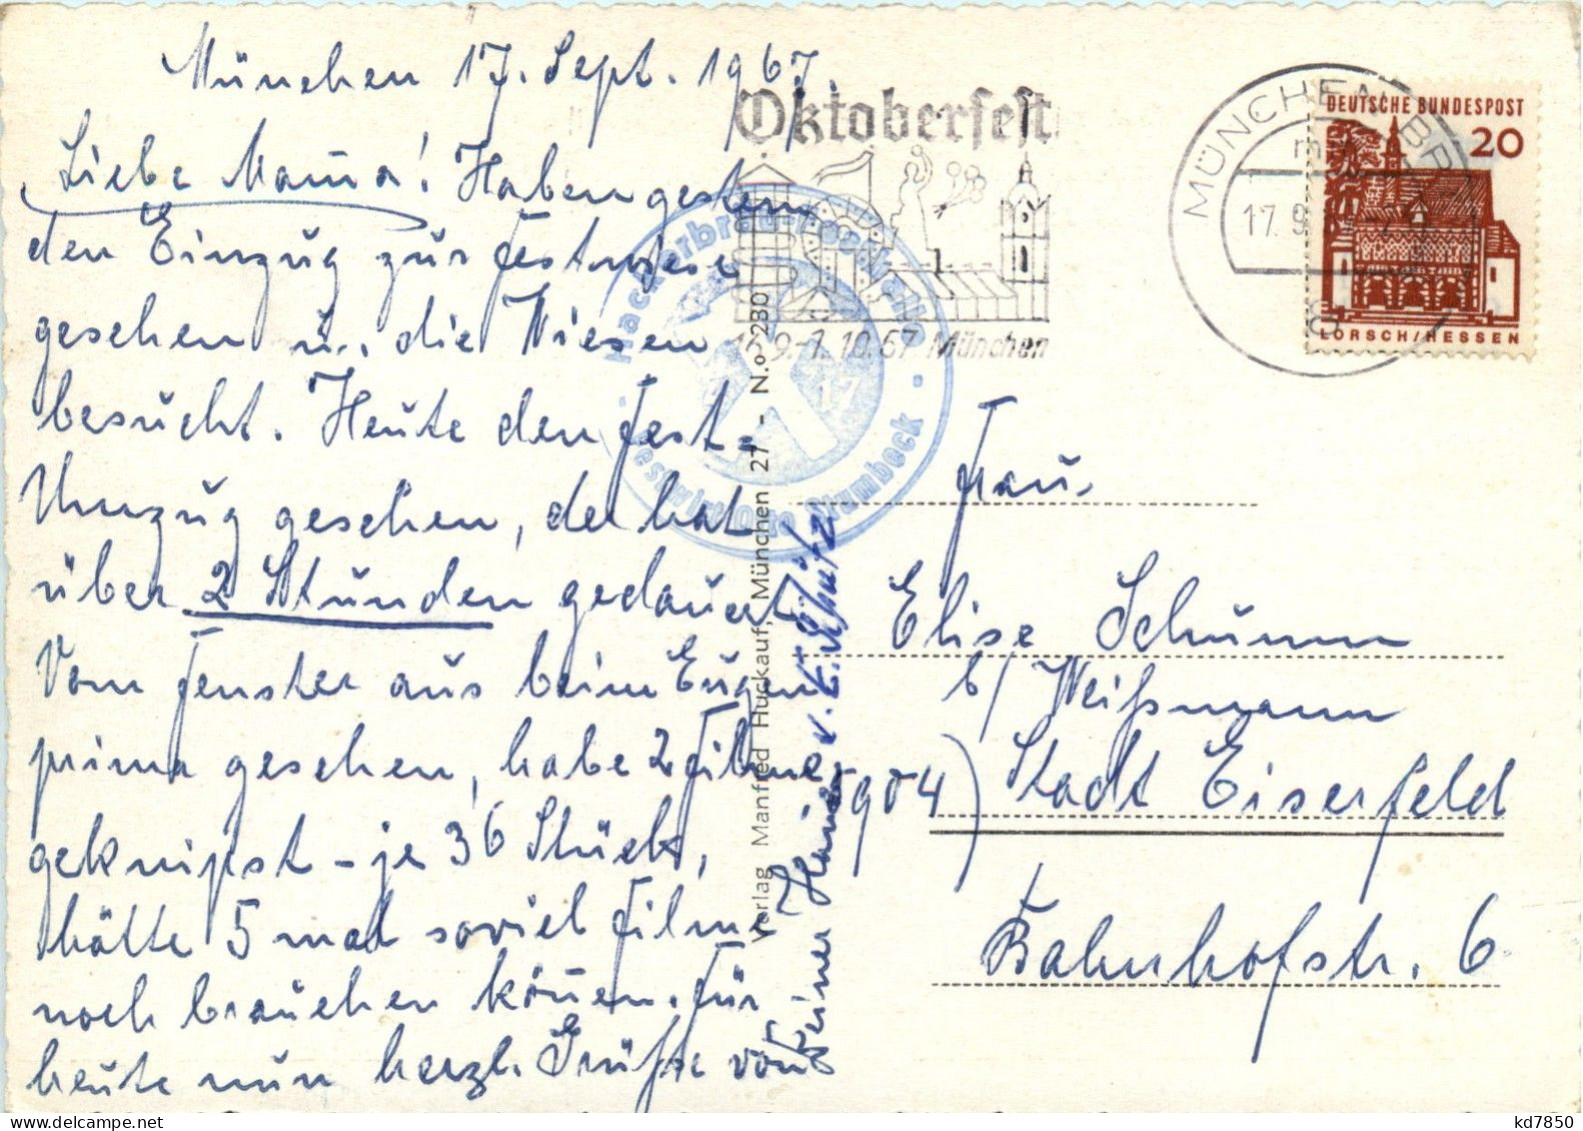 München 17. Sept. 1967.
Liebe Mama! Haben gestern
den Einzug zur Festwiese
gesehen u. die Wiesen
besucht. Heute den Fest=
Umzug gesehen, der hat
über 2 Stunden gedauert
Vom Fenster aus beim Eugen
prima gesehen, habe 2 Filme
geknipst - je 36 Stück,
hätte 5 mal soviel Filme
noch brauchen können. Für
heute nun herzl. Grüße von
Deiner v. E. Schütz
Oktoberfest
16.9.-1.10.67 München
Hackerbräu-Festhalle
Festwirt Otto
Verlag Manfred Huckauf, München 27 - N.º 280
MÜNCHEN BP
17.9.
DEUTSCHE BUNDESPOST
20
LORSCH/HESSEN
Frau
Elise Schumm
b/ Weißmann
5904) Stadt Eiserfeld
Bahnhofstr. 6
kd7850